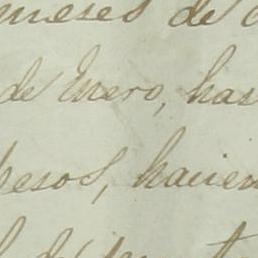 meses de
de Enero, has
pesos, hacien